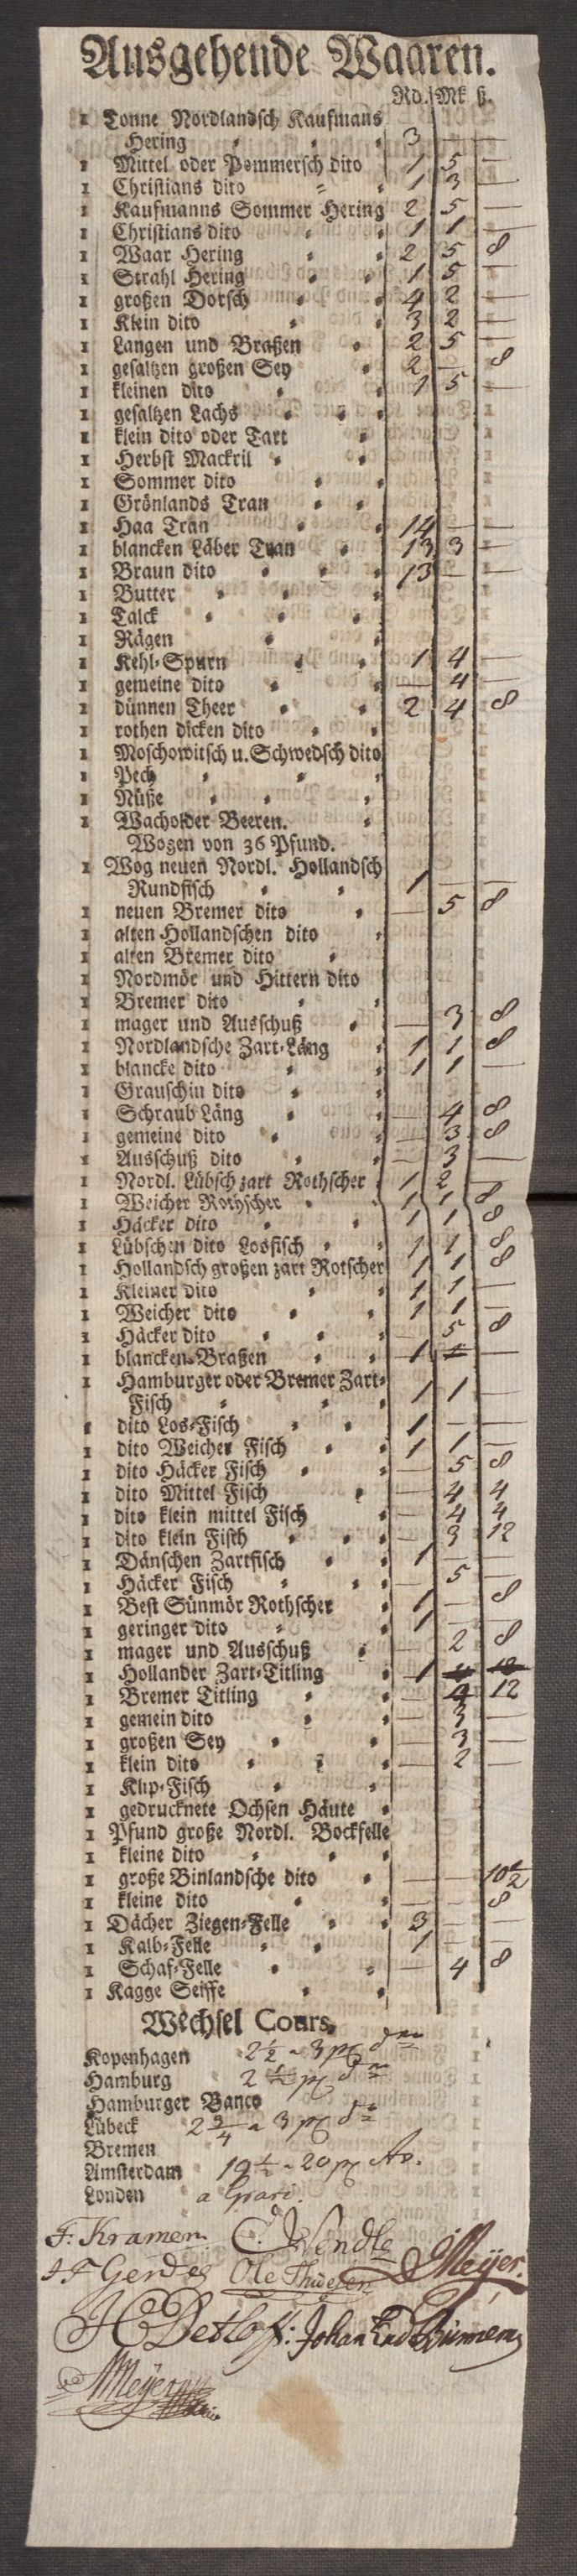 Ausgehende Waaren.
Rd. Mk ß.
1 Tonne Nordlandsch Kaufmans
Hering 3 — —
1 Mittel oder Pommersch dito 1 5 —
1 Christians dito 1 3 —
1 Kaufmanns Sommer Hering 2 5 —
1 Christians dito 1 1 —
1 Waar Hering 2 5 8
1 Strahl Hering 1 5 —
1 großen Dorsch 4 2 —
1 Klein dito 3 2 —
1 Langen und Braßen 2 5 —
1 gesaltzen großen Sey 2 — 8
1 kleinen dito 1 5 —
1 gesaltzen Lachs
1 klein dito oder Tart
1 Herbst Mackril
1 Sommer dito
1 Grönlands Tran
1 Haa Tran 14 — —
1 blancken Läber Tran 13 3 —
1 Braun dito 13 — —
1 Butter
1 Talck
1 Rägen
1 Kehl-Spurn 1 4 —
1 gemeine dito — 4 —
1 dünnen Theer 2 4 8
1 rothen dicken dito
1 Moschowitsch u. Schwedsch dito
1 Pech
1 Nüße
1 Wacholder Beeren.
Wogen von 36 Pfund.
1 Wog neuen Nordl. Hollandsch
Rundfisch 1 — —
1 neuen Bremer dito — 5 8
1 alten Hollandschen dito
1 alten Bremer dito
1 Nordmör und Hittern dito
1 Bremer dito
1 mager und Ausschuß — 3 8
1 Nordlandsche Zart-Läng 1 1 8
1 blancke dito 1 1 —
1 Grauschin dito
1 Schraub Läng — 4 8
1 gemeine dito — 3 8
1 Ausschuß dito — 3 —
1 Nordl. Lübsch zart Rothscher 1 2 —
1 Weicher Rothscher 1 1 8
1 Häcker dito 1 1 8
1 Lübschen dito Losfisch 1 1 8
1 Hollandsch großen zart Rotscher 1 1 8
1 Kleiner dito 1 1 —
1 Weicher dito 1 1 —
1 Häcker dito — 5 8
1 blancken-Braßen 1 —
1 Hamburger oder Bremer Zart-
Fisch 1 1 —
1 dito Los-Fisch 1 — —
1 dito Weicher Fisch 1 1 —
1 dito Häcker Fisch — 5 8
1 dito Mittel Fisch — 4 4
1 dito klein mittel Fisch — 4 4
1 dito klein Fisch — 3 12
1 Dänschen Zartfisch 1 — —
1 Häcker Fisch — 5 —
1 Best Sünmör Rothscher 1 — 8
1 geringer dito 1 — —
1 mager und Ausschuß — 2 8
1 Hollander Zart-Titling — 1
1 Bremer Titling — 4 12
1 gemein dito — 3 —
1 großen Sey — 3 —
1 klein dito — 2 —
1 Klip-Fisch
1 gedrucknete Ochsen Häute
1 Pfund große Nordl. Bockfelle
1 kleine dito
1 große Binlandsche dito — — 10½
1 kleine dito — — 8
1 Dächer Ziegen-Felle 3 — —
1 Kalb-Felle 1 — —
1 Schaf-Felle — 4 8
1 Kagge Seiffe
Wechsel Cours.
Kopenhagen 2½ a 3 pC
Hamburg 2½ pC
Hamburger Banco
Lübeck 2¾ a 3 pC
Bremen
Amsterdam 19½ a 20 pC
Londen a
F: Kramer. C. Wendle JMeÿer.
J F Gerdes Ole Thuesen
HCDetloff: Johan
Meÿer